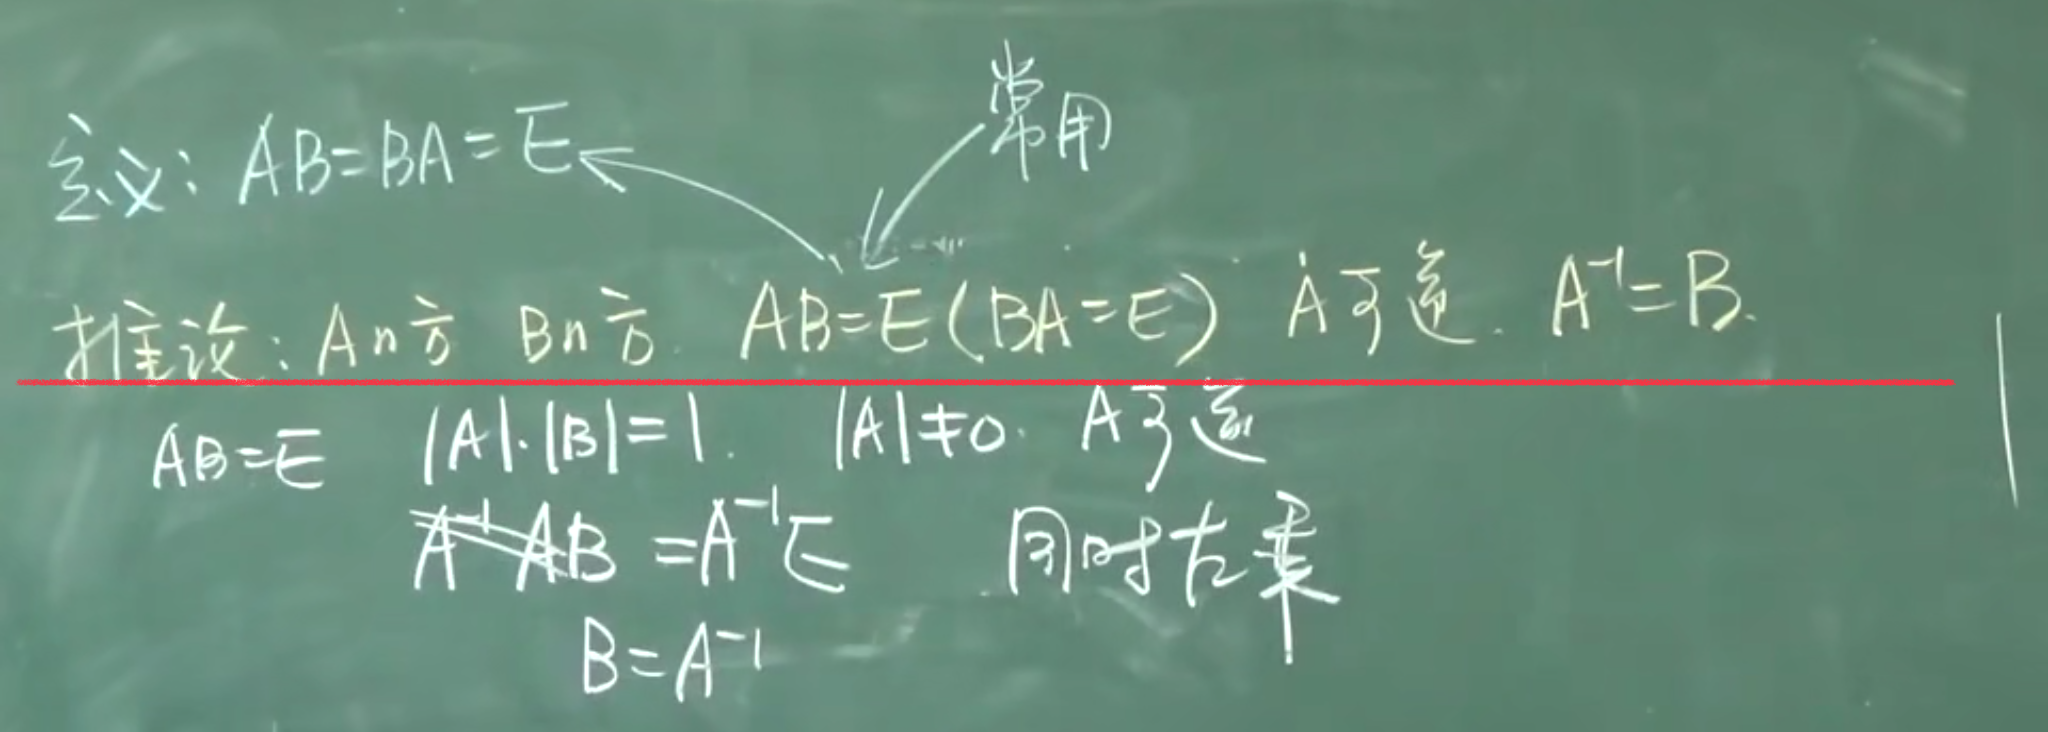 常用
定义: AB=BA=E
推论: A n方 B n方. AB=E(BA=E) A可逆. A⁻¹=B.
AB=E |A|·|B|=1. |A|≠0. A可逆
A⁻¹AB=A⁻¹E 同时左乘
B=A⁻¹